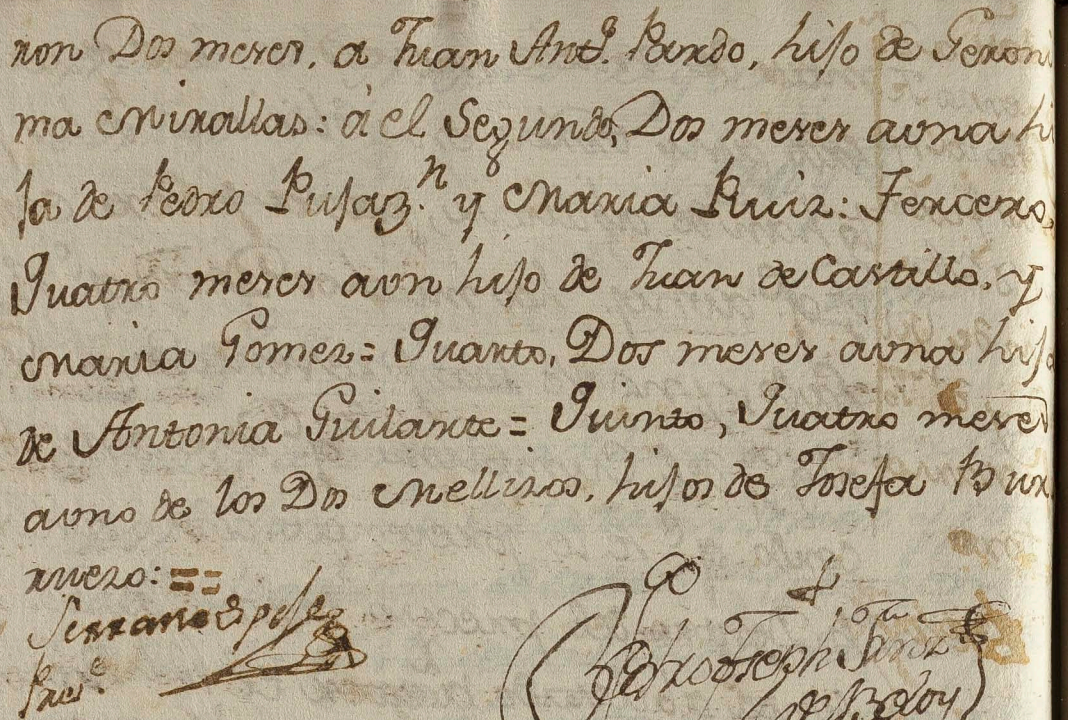 ron Dos meses, a Juan Antº. Pardo, hijo de Geroni
ma Mirallas: á el Segundo, Dos meses auna hi
ja de Pedro Pujazⁿ. y Maria Ruiz: Tercero,
Quatro meses aun hijo de Juan de Castillo, y
Maria Gomez = Quarto, Dos meses áuna hija
de Antonia Guilarte = Quinto, Quatro meses
auno de los Dos Mellizos, hijos de Josefa Bur
ruezo: ==
Serrano
Pedro Joseph